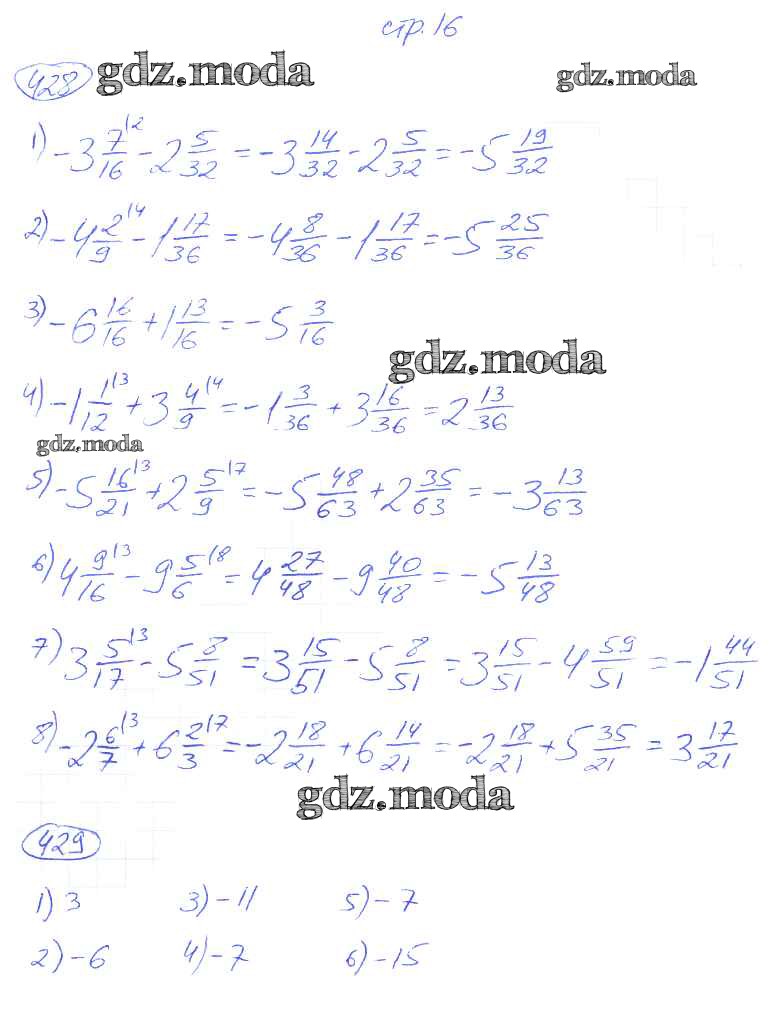 стр. 16
428 gdz.moda gdz.moda
1) -3 7/16 ^(2 - 2 5/32 = -3 14/32 - 2 5/32 = -5 19/32
2) -4 2/9 ^(4 - 1 17/36 = -4 8/36 - 1 17/36 = -5 25/36
3) -6 16/16 + 1 13/16 = -5 3/16
gdz.moda
4) -1 1/12 ^(3 + 3 4/9 ^(4 = -1 3/36 + 3 16/36 = 2 13/36
gdz.moda
5) -5 16/21 ^(3 + 2 5/9 ^(7 = -5 48/63 + 2 35/63 = -3 13/63
6) 4 9/16 ^(3 - 9 5/6 ^(8 = 4 27/48 - 9 40/48 = -5 13/48
7) 3 5/17 ^(3 - 5 8/51 = 3 15/51 - 5 8/51 = 3 15/51 - 4 59/51 = -1 44/51
8) -2 6/7 ^(3 + 6 2/3 ^(7 = -2 18/21 + 6 14/21 = -2 18/21 + 5 35/21 = 3 17/21
gdz.moda
429
1) 3 3) -11 5) -7
2) -6 4) -7 6) -15